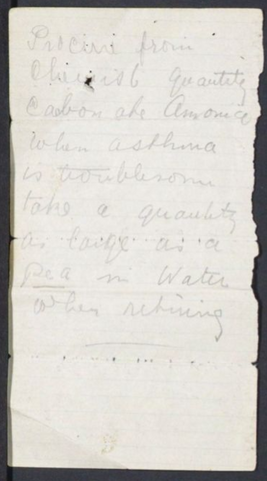 Procure from
Chemist quantity
Carbon ate Amonia
when asthma
is troublesom
take a quantity
as large as a
pea in Water
when retiring